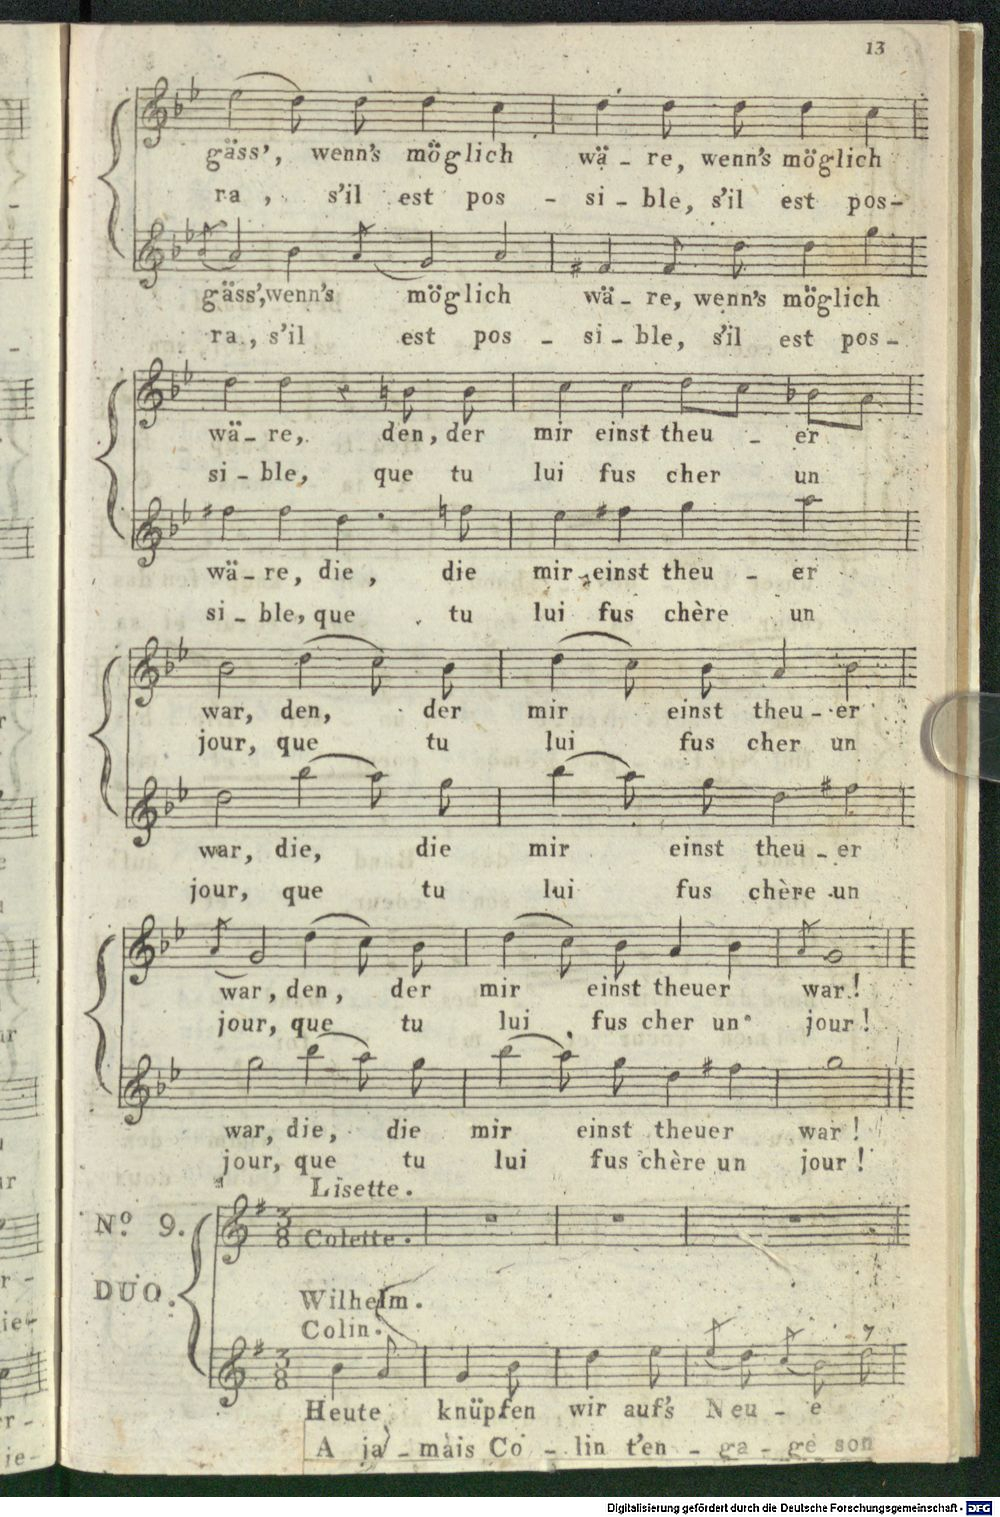 13
gäss', wenn's möglich wä - re, wenn's möglich
ra, s'il est pos - si - ble, s'il est pos-
gäss', wenn's möglich wä - re, wenn's möglich
ra, s'il est pos - si - ble, s'il est pos-
wä - re, den, der mir einst theu - er
si - ble, que tu lui fus cher un
wä - re, die, die mir einst theu - er
si - ble, que tu lui fus chère un
war, den, der mir einst theu - er
jour, que tu lui fus cher un
war, die, die mir einst theu - er
jour, que tu lui fus chère un
war, den, der mir einst theuer war!
jour, que tu lui fus cher un jour!
war, die, die mir einst theuer war!
jour, que tu lui fus chère un jour!
Lisette.
Nº 9.
Colette.
DUO.
Wilhelm.
Colin.
Heute knüpfen wir auf's Neu - e
A ja - mais Co - lin t'en - ga - ge son
Digitalisierung gefördert durch die Deutsche Forschungsgemeinschaft - DFG